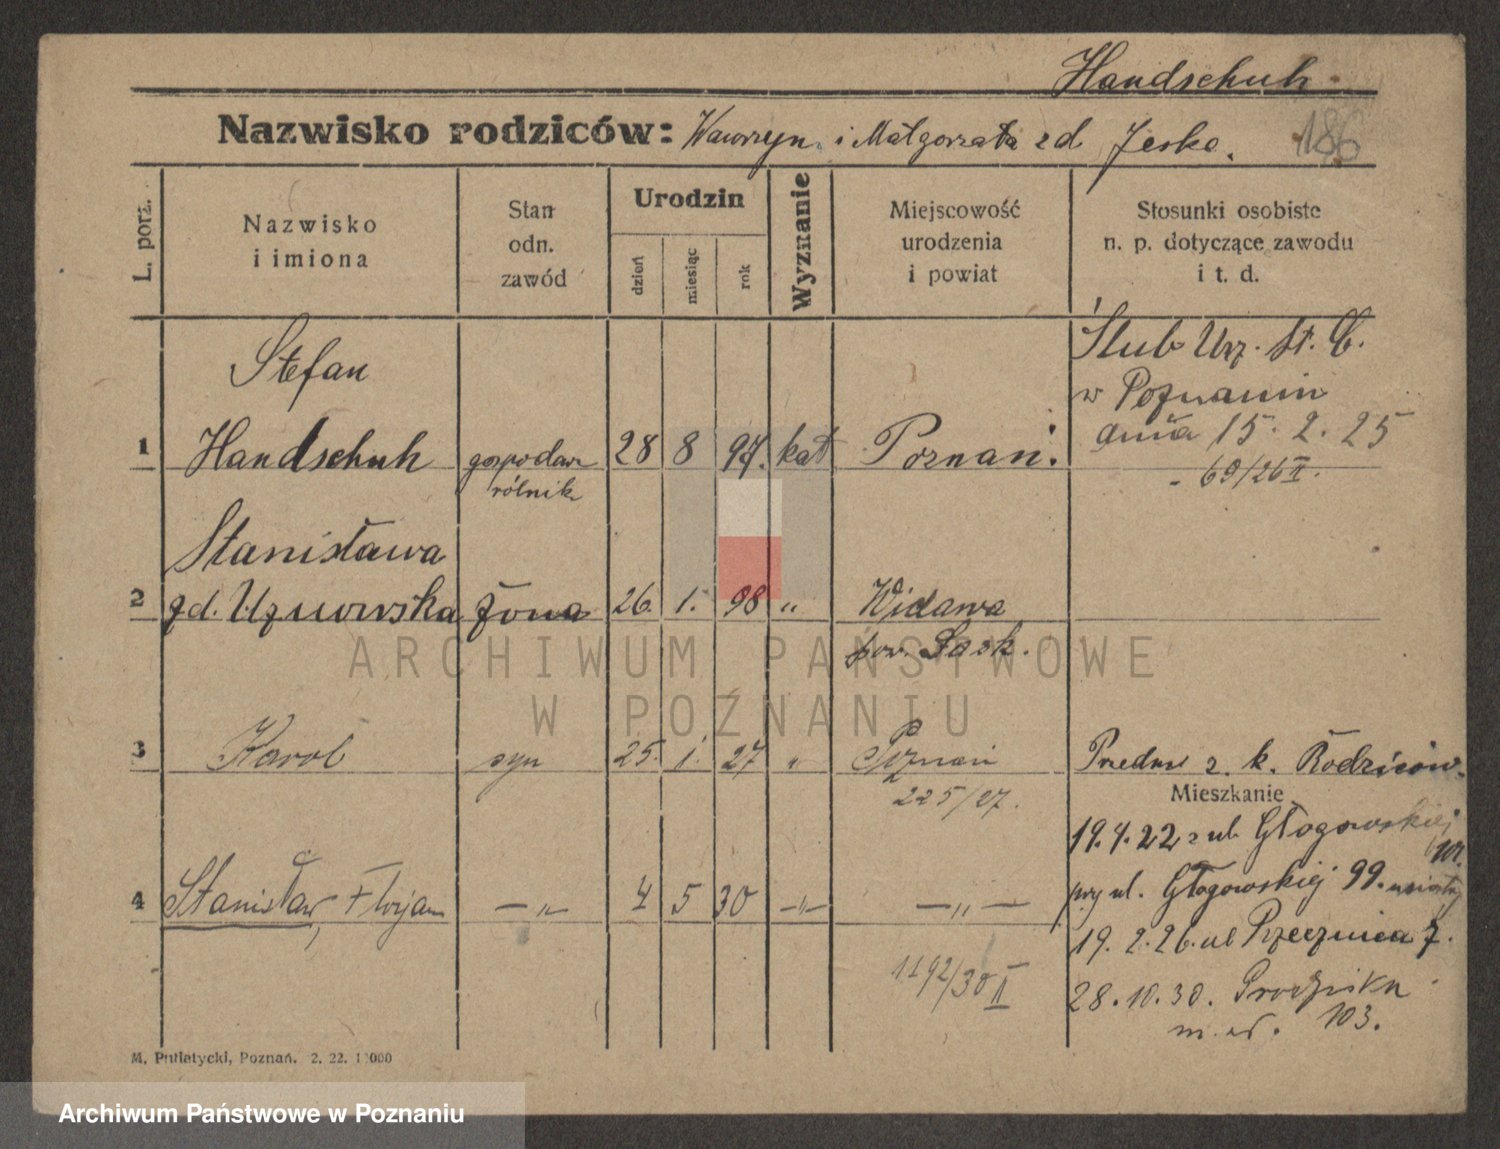 Handschuh
Nazwisko rodziców: Wawrzyn. i Małgorzata zd Jeske.
186
L. porz.
Nazwisko
i imiona
Stan
odn.
zawód
Urodzin
dzień
miesiąc
rok
Wyznanie
Miejscowość
urodzenia
i powiat
Stosunki osobiste
n. p. dotyczące zawodu
i t. d.
Stefan
1 Handschuh gospodarz 28 8 97. kat Poznań.
rólnik
Ślub Urz. St. C.
w Poznaniu
dnia 15. 2. 25
- 69/26 II.
Stanisława
2 zd. Uznowska żona 26. 1. 98 " Widawa
pow. Łask.
3 Karol syn 25. 1. 27 " Poznań
225/27.
Przedm z. k. Rodziców.
Mieszkanie
19.4.22 z ul. Głogowskiej
przy ul. Głogowskiej 99.
19. 2. 26. ul Rzeczna 7.
28. 10. 30.
103.
4 Stanisław, Florjan — " — 4 5 30 — " — — " —
1192/30 II
M. Putiatycki, Poznań. 2. 22. 1 000
ARCHIWUM PAŃSTWOWE
W POZNANIU
Archiwum Państwowe w Poznaniu